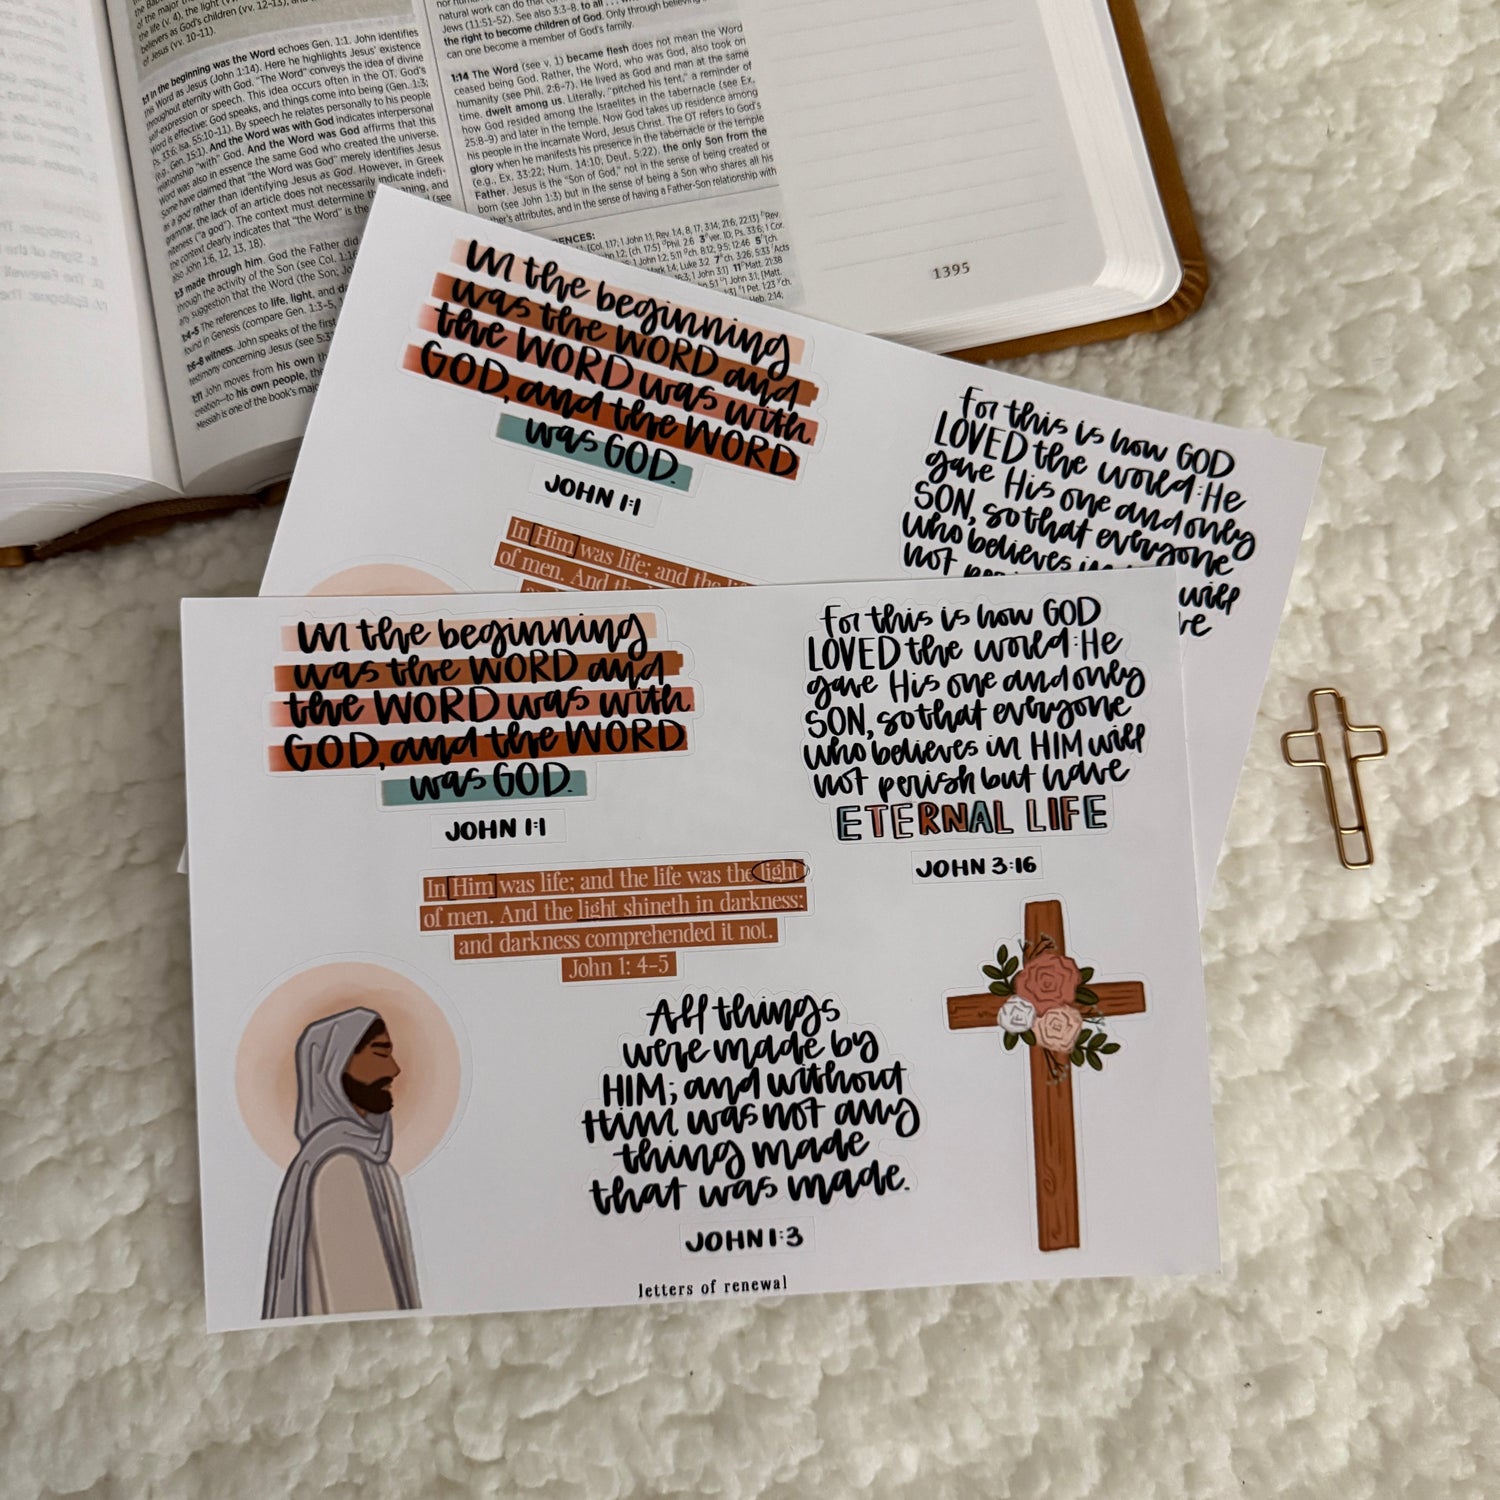 of the major the
the life (v. 4), the light (v
believers as God's children (vv. 12-13), and
of Jesus (vv. 10-11).
1:1 In the beginning was the Word echoes Gen. 1:1. John identifies
this Word as Jesus (John 1:14). Here he highlights Jesus' existence
throughout eternity with God. "The Word" conveys the idea of divine
self-expression or speech. This idea occurs often in the OT. God's
Word is effective: God speaks, and things come into being (Gen. 1:3;
Ps. 33:6; Isa. 55:10-11). By speech he relates personally to his people
(e.g., Gen. 15:1). And the Word was with God indicates interpersonal
relationship "with" God. And the Word was God affirms that this
Word was also in essence the same God who created the universe.
Some have claimed that "the Word was God" merely identifies Jesus
as a god rather than identifying Jesus as God. However, in Greek
grammar, the lack of an article does not necessarily indicate indefi-
niteness ("a god"). The context must determine the meaning, and
the context clearly indicates that "the Word" is the (see
also John 1:6, 12, 13, 18).
1:3 made through him. God the Father did
through the activity of the Son (see Col. 1:16
any suggestion that the Word (the Son, Jo
1:4-5 The references to life, light, and da
found in Genesis (compare Gen. 1:3-5,
1:6-8 witness. John speaks of the first
testimony concerning Jesus (see 5:3
1:11 John moves from his own th
creation—to his own people, th
Messiah is one of the book's majo
natural work can do that
Jews (11:51-52). See also 3:3-8. to all . . .
the right to become children of God. Only through believing
can one become a member of God's family.
1:14 The Word (see v. 1) became flesh does not mean the Word
ceased being God. Rather, the Word, who was God, also took on
humanity (see Phil. 2:6-7). He lived as God and man at the same
time. dwelt among us. Literally, "pitched his tent," a reminder of
how God resided among the Israelites in the tabernacle (see Ex.
25:8-9) and later in the temple. Now God takes up residence among
his people in the incarnate Word, Jesus Christ. The OT refers to God's
glory when he manifests his presence in the tabernacle or the temple
(e.g., Ex. 33:22; Num. 14:10; Deut. 5:22). the only Son from the
Father. Jesus is the "Son of God," not in the sense of being created or
born (see John 1:3) but in the sense of being a Son who shares all his
her's attributes, and in the sense of having a Father-Son relationship with
ENCES:
1395
In the beginning
was the WORD and
the WORD was with
GOD, and the WORD
was GOD.
JOHN 1:1
In Him was life; and the li
of men. And the
For this is how GOD
LOVED the world: He
gave His one and only
SON, so that everyone
who believes in
not will
In the beginning
was the WORD and
the WORD was with
GOD, and the WORD
was GOD.
JOHN 1:1
For this is how GOD
LOVED the world: He
gave His one and only
SON, so that everyone
who believes in HIM will
not perish but have
ETERNAL LIFE
JOHN 3:16
In Him was life; and the life was the light
of men. And the light shineth in darkness;
and darkness comprehended it not.
John 1: 4-5
All things
were made by
HIM; and without
Him was not any
thing made
that was made.
JOHN 1:3
letters of renewal